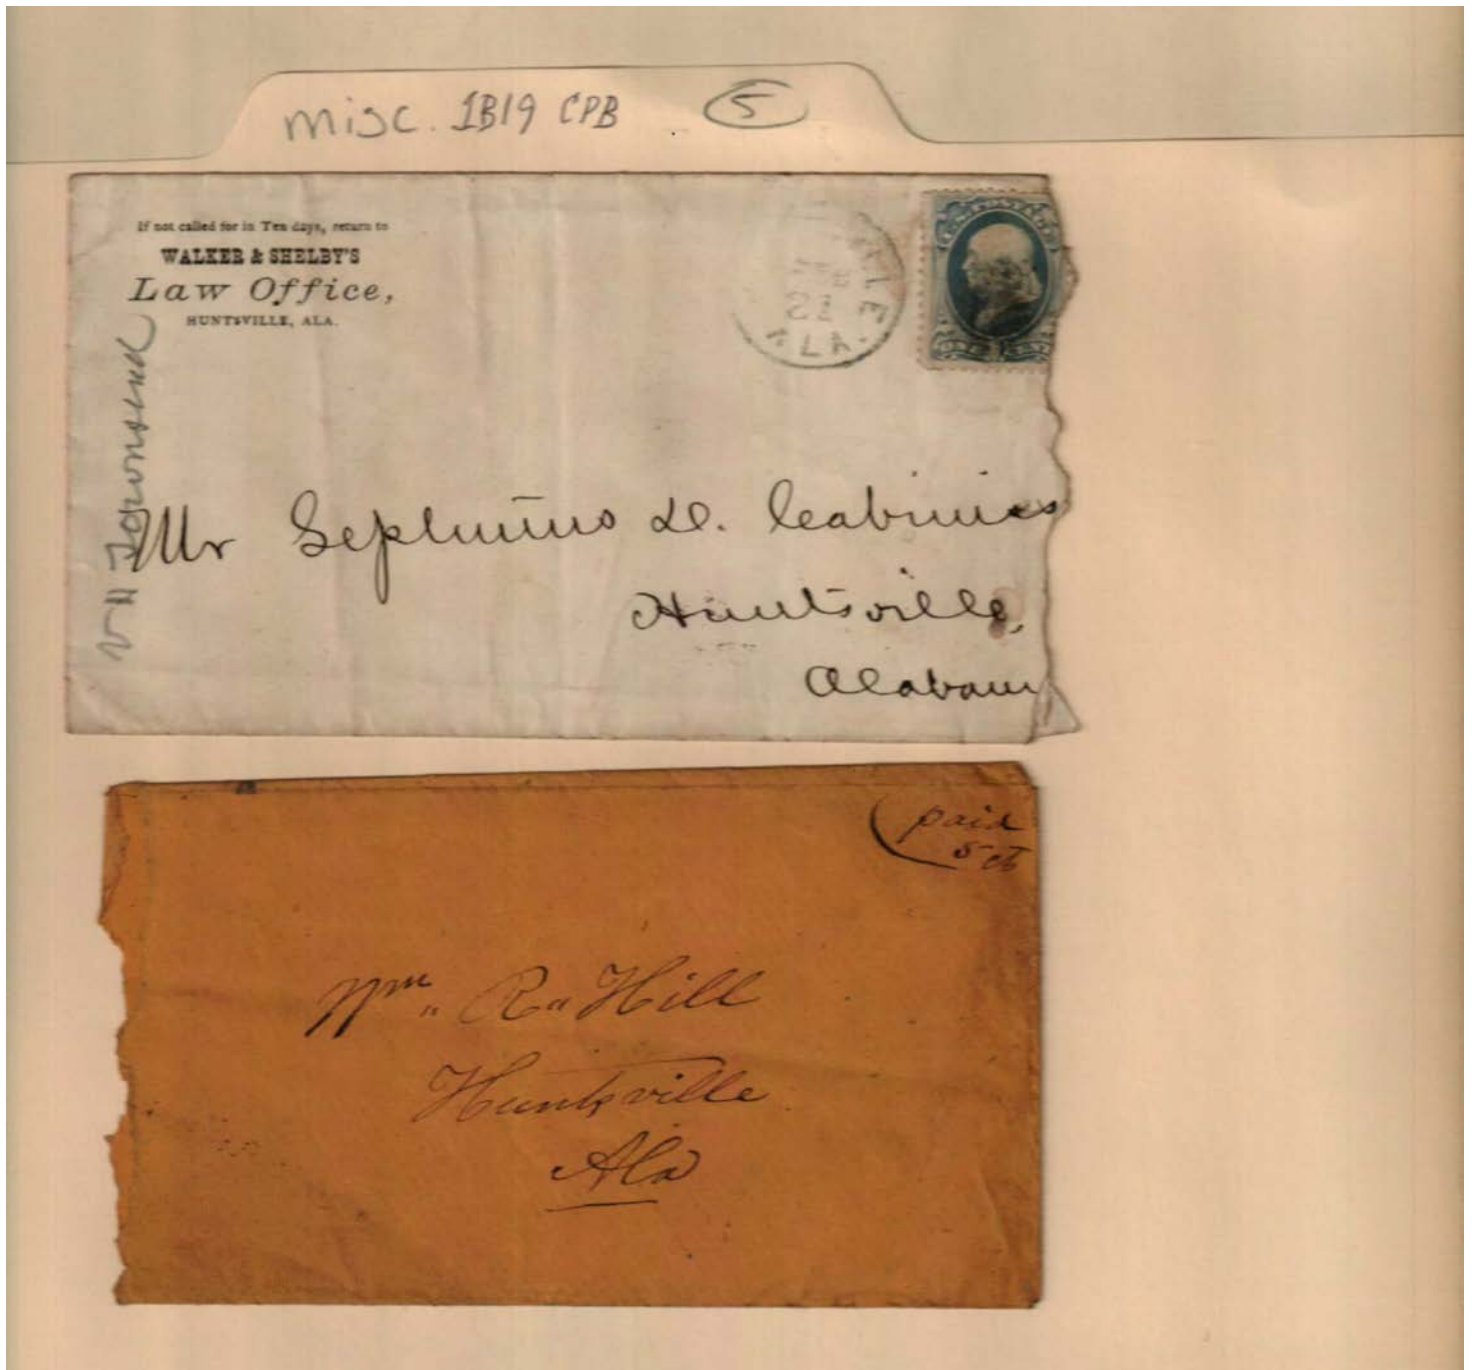 misc. 1B19 CPB 5
If not called for in Ten days, return to
WALKER & SHELBY'S
Law Office,
HUNTSVILLE, ALA.
ALA.
U.S. POSTAGE
Townsend
Mr Septimus D. Cabiniss
Huntsville,
Alabam
paid
5 ct
Wm " R " Hill
Huntsville
Ala